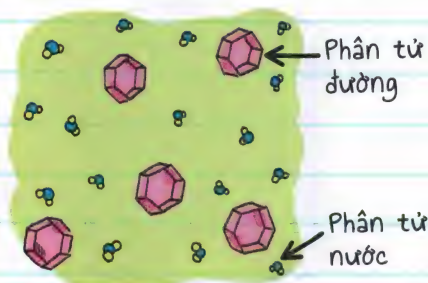 Phân tử
đường
Phân tử
nước